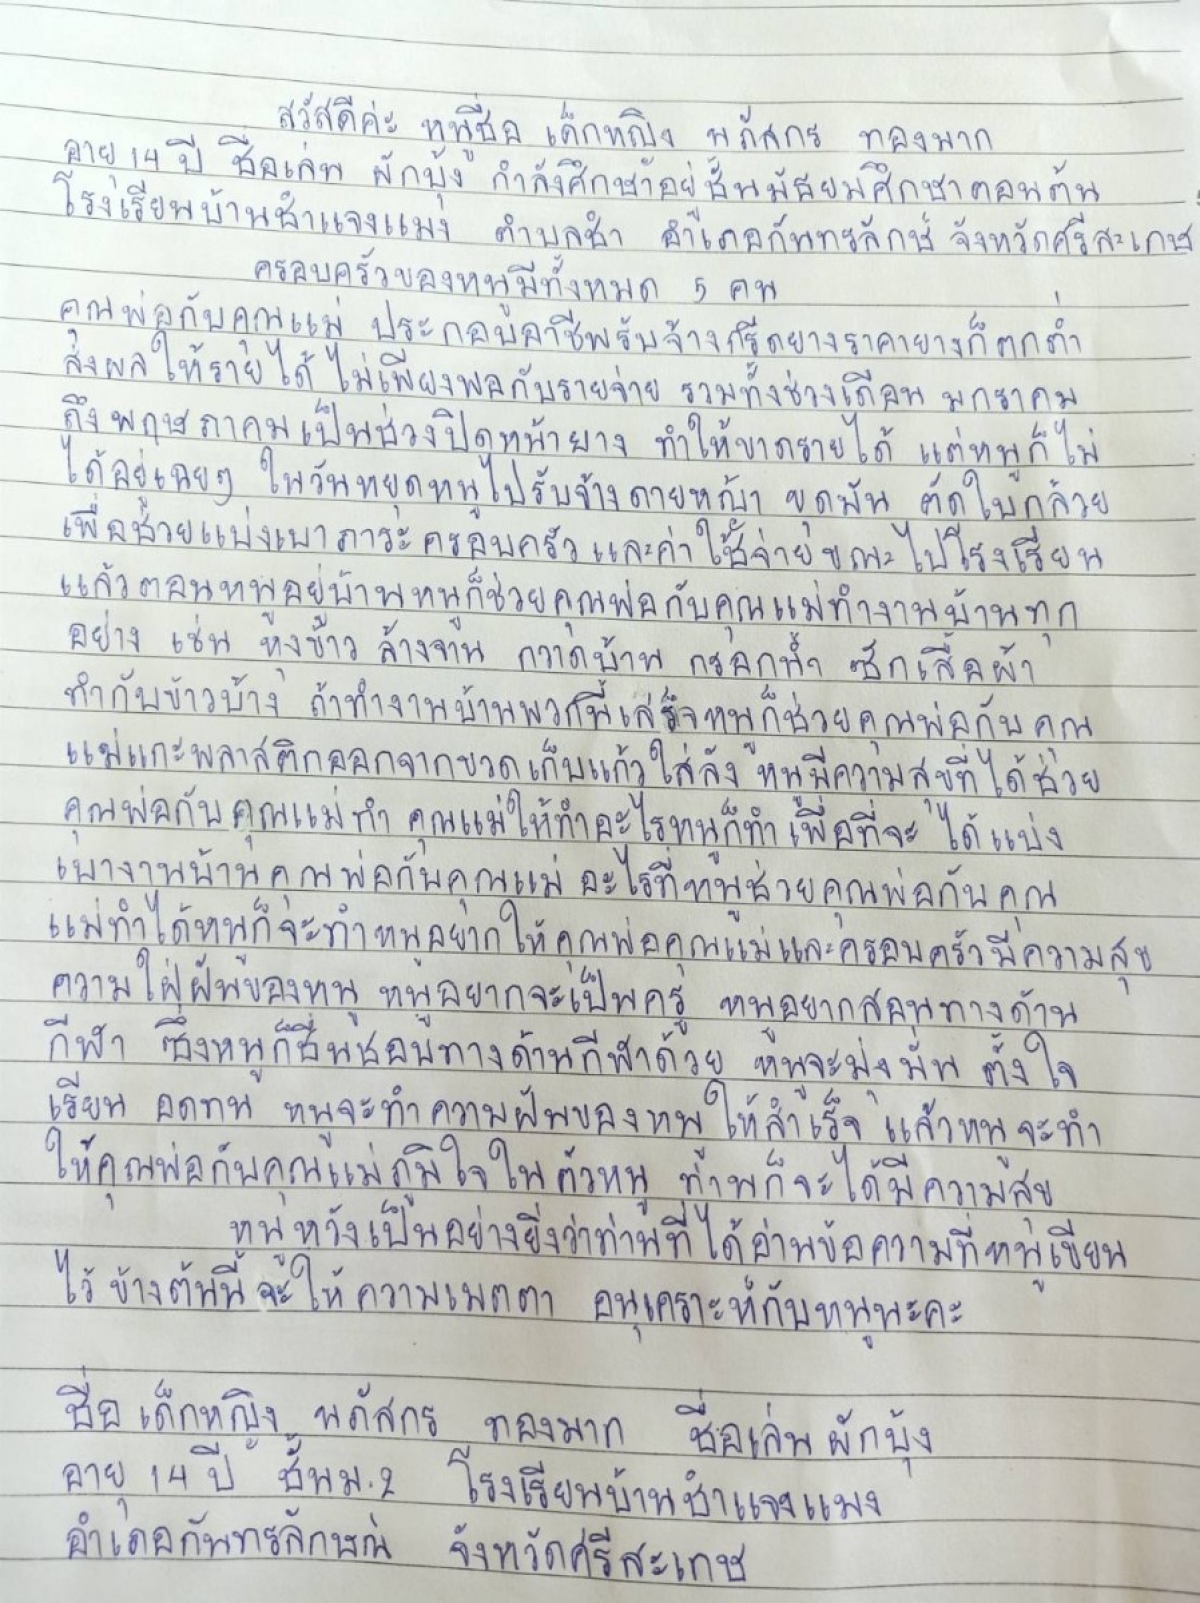 สวัสดีค่ะ หนูชื่อ เด็กหญิง นภัสกร ทองมาก
อายุ 14 ปี ชื่อเล่น ผักบุ้ง กำลังศึกษาอยู่ชั้นมัธยมศึกษาตอนต้น
โรงเรียนบ้านชำแจงแมง ตำบลชำ อำเภอกันทรลักษ์ จังหวัดศรีสะเกษ
ครอบครัวของหนูมีทั้งหมด 5 คน
คุณพ่อกับคุณแม่ ประกอบอาชีพรับจ้างกรีดยางราคายางก็ตกต่ำ
ส่งผลให้รายได้ ไม่เพียงพอกับรายจ่าย รวมทั้งช่วงเดือน มกราคม
ถึงพฤษภาคมเป็นช่วงปิดหน้ายาง ทำให้ขาดรายได้ แต่หนูก็ไม่
ได้อยู่เฉยๆ ในวันหยุดหนูไปรับจ้างดายหญ้า ขุดมัน ตัดใบกล้วย
เพื่อช่วยแบ่งเบาภาระครอบครัว และค่าใช้จ่ายขณะไปโรงเรียน
แล้วตอนหนูอยู่บ้านหนูก็ช่วยคุณพ่อกับคุณแม่ทำงานบ้านทุก
อย่าง เช่น หุงข้าว ล้างจาน กวาดบ้าน กรอกน้ำ ซักเสื้อผ้า
ทำกับข้าวบ้าง ถ้าทำงานบ้านพวกนี้เสร็จหนูก็ช่วยคุณพ่อกับคุณ
แม่แกะพลาสติกออกจากขวดเก็บแก้วใส่ลัง หนูมีความสุขที่ได้ช่วย
คุณพ่อกับคุณแม่ทำ คุณแม่ให้ทำอะไรหนูก็ทำ เพื่อที่จะ ได้แบ่ง
เบางานบ้านคุณพ่อกับคุณแม่ อะไรที่หนูช่วยคุณพ่อกับคุณ
แม่ทำได้หนูก็จะทำหนูอยากให้คุณพ่อคุณแม่และครอบครัวมีความสุข
ความใฝ่ฝันของหนู หนูอยากจะเป็นครู หนูอยากสอนทางด้าน
กีฬา ซึ่งหนูก็ชื่นชอบทางด้านกีฬาด้วย หนูจะมุ่งมั่น ตั้งใจ
เรียน อดทน หนูจะทำความฝันของหนูให้สำเร็จ แล้วหนูจะทำ
ให้คุณพ่อกับคุณแม่ภูมิใจในตัวหนู ท่านก็จะได้มีความสุข
หนูหวังเป็นอย่างยิ่งว่าท่านที่ได้อ่านข้อความที่หนูเขียน
ไว้ ข้างต้นนี้ จะให้ความเมตตา อนุเคราะห์กับหนูนะคะ
ชื่อ เด็กหญิง นภัสกร ทองมาก ชื่อเล่น ผักบุ้ง
อายุ 14 ปี ชั้นม.2 โรงเรียนบ้านชำแจงแมง
อำเภอกันทรลักษณ์ จังหวัดศรีสะเกษ